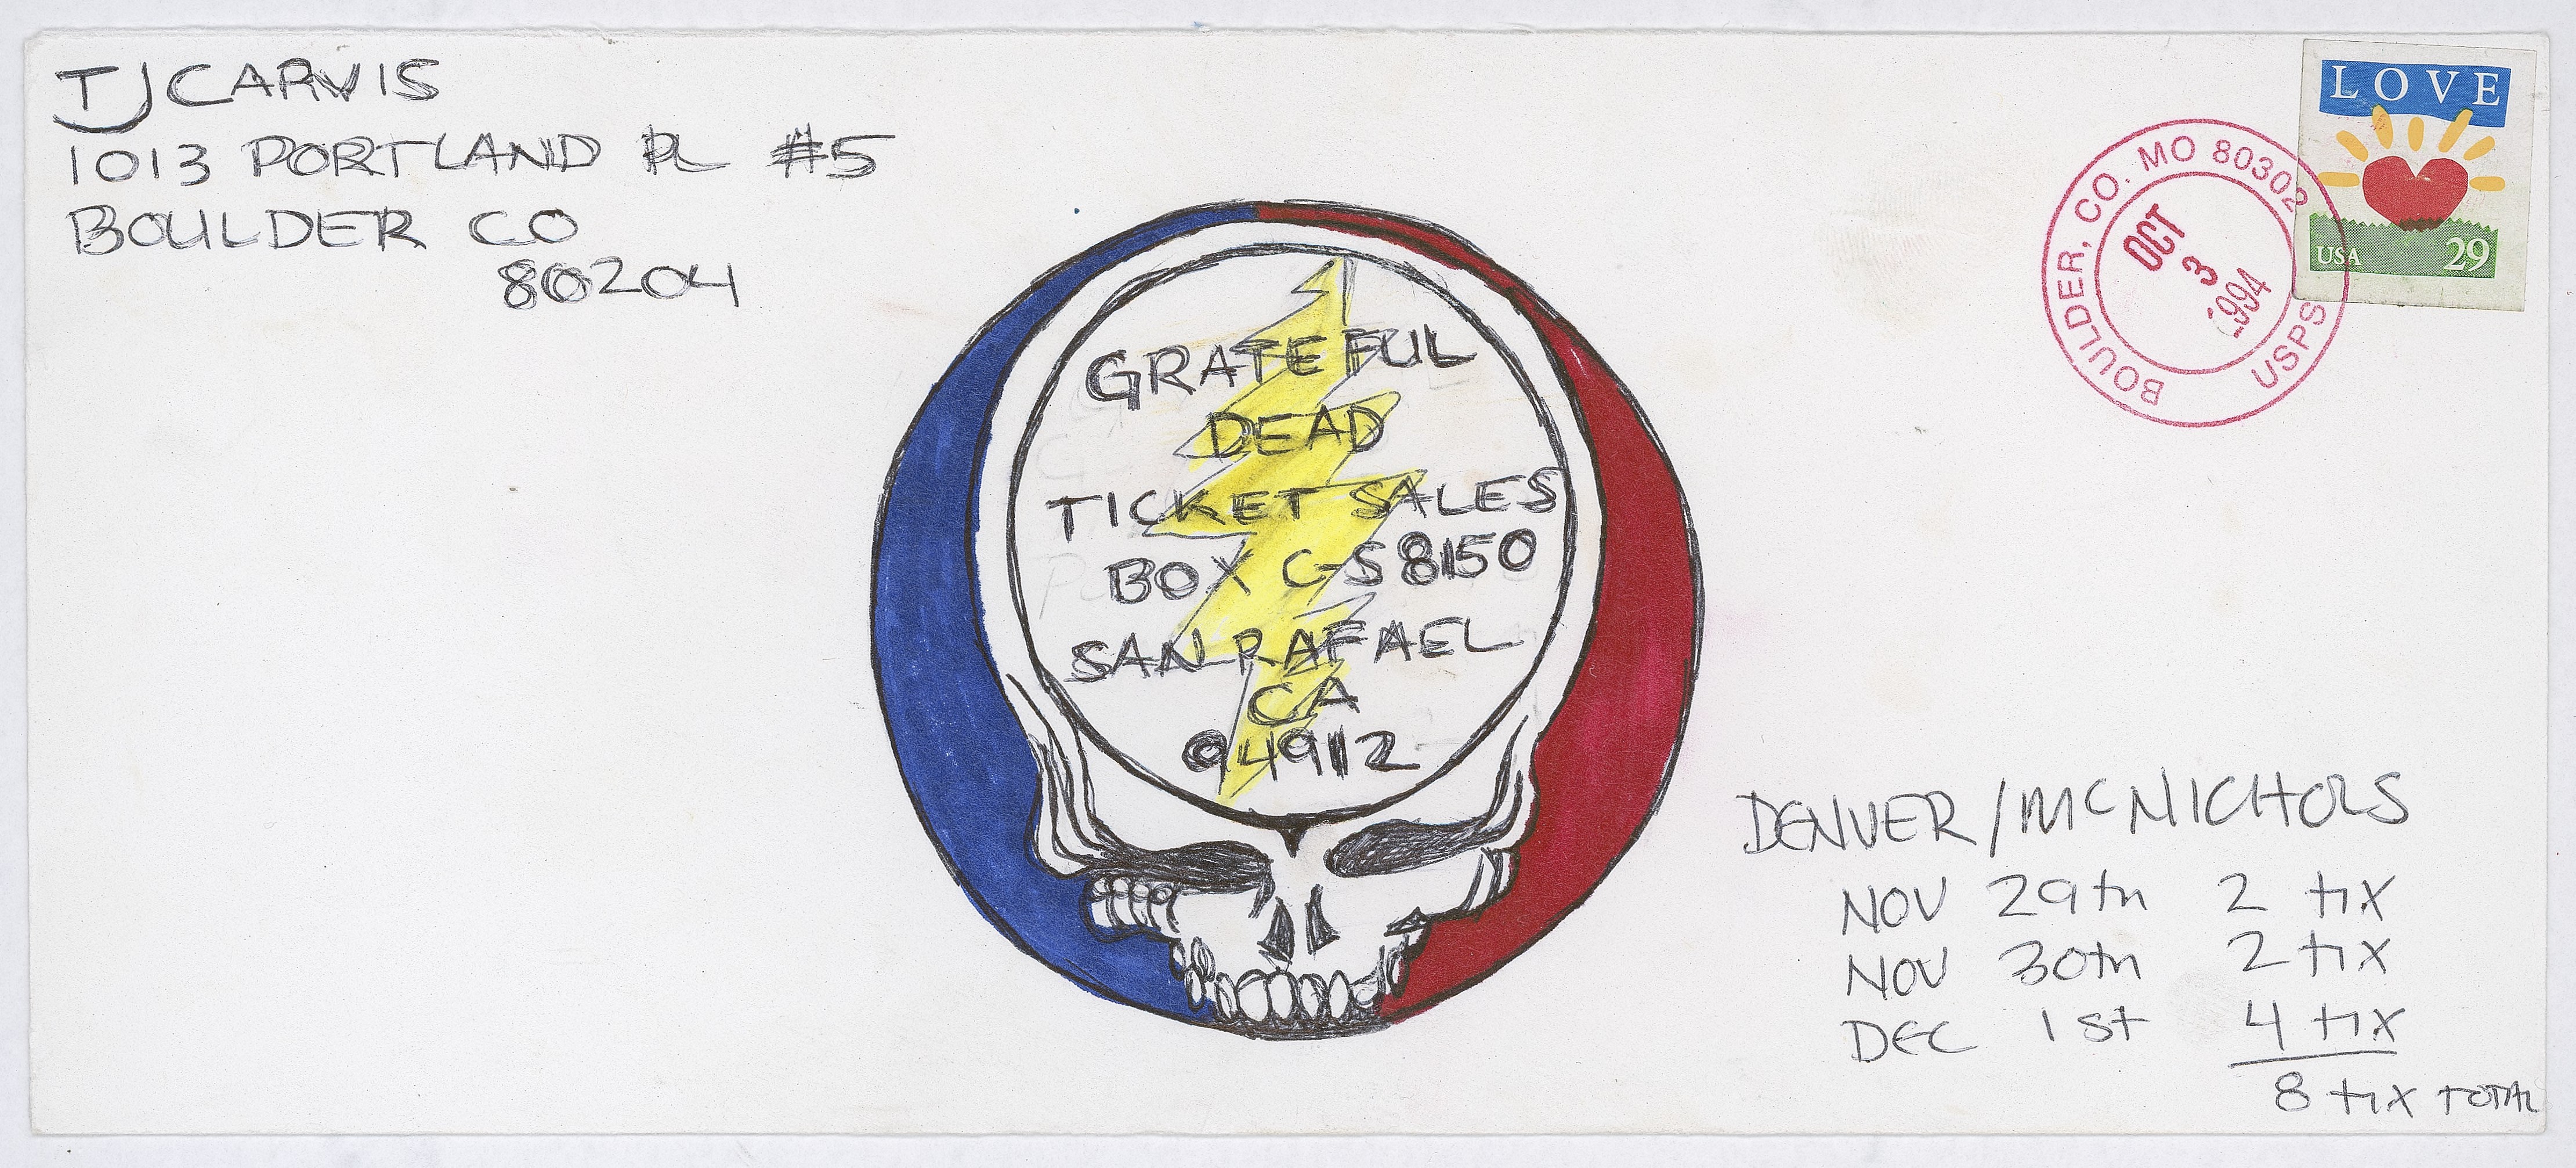 TJ CARVIS
1013 PORTLAND PL #5
BOULDER CO
80204
LOVE
USA 29
BOULDER, CO. MO 80302
USPS
OCT
3
1994
GRATEFUL
DEAD
TICKET SALES
BOX C-S 8150
SAN RAFAEL
CA
94912
DENVER/MCNICHOLS
NOV 29th 2 tix
NOV 30th 2 tix
DEC 1st 4 tix
8 tix TOTAL